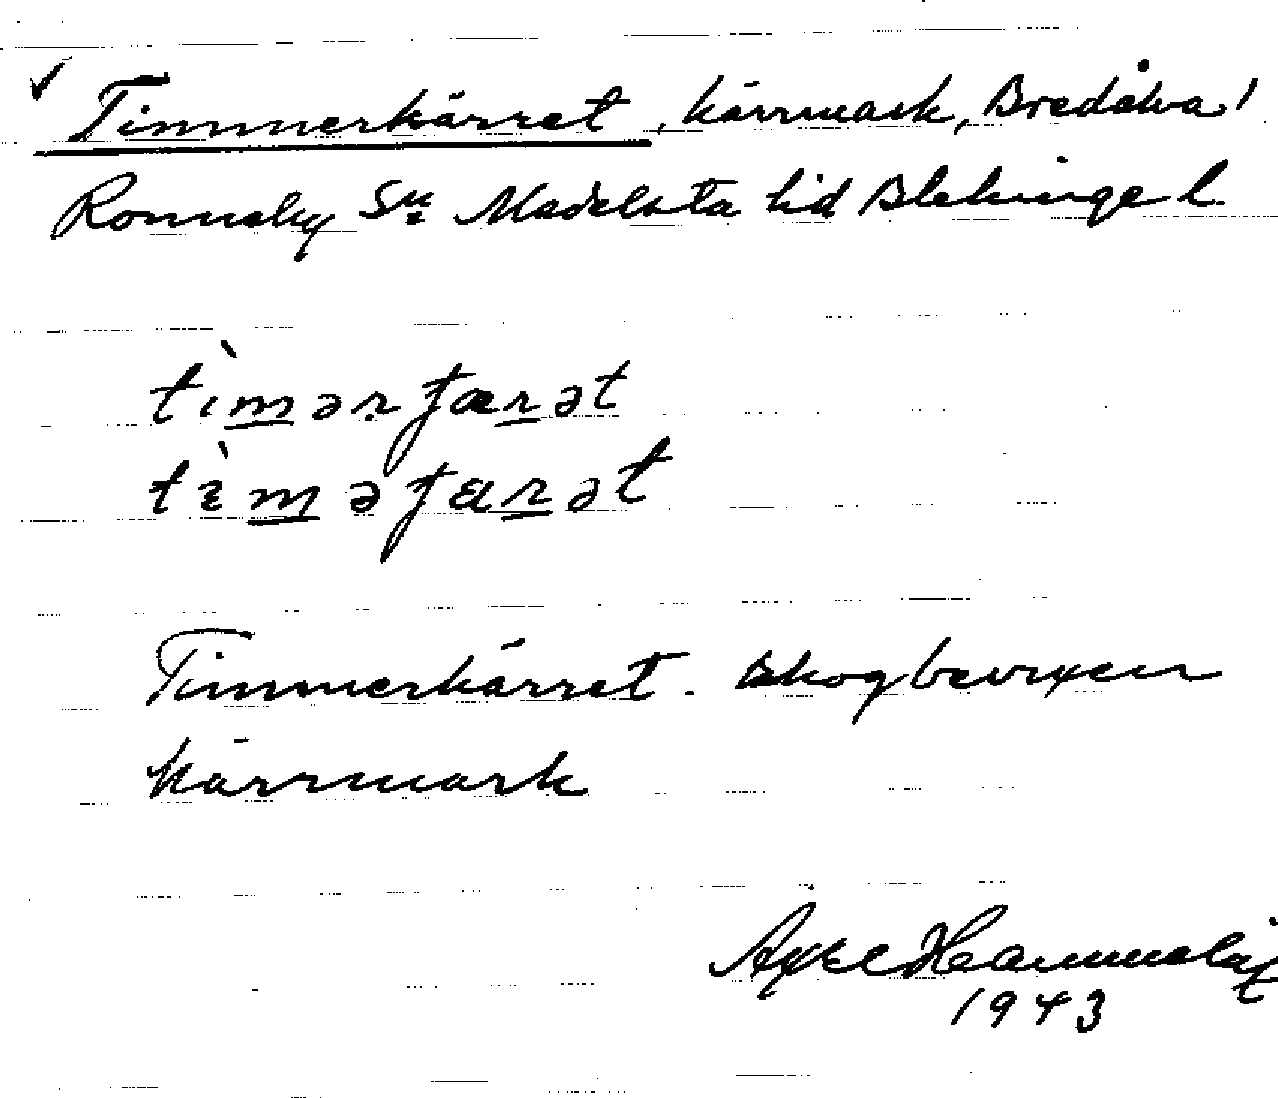 Timmerkärret, kärrmark, Bredåkra 1
Ronneby sn Medelsta hd Blekinge l
tìmərʄærət
tìməʄærət
Timmerkärret. skogbevuxen
kärrmark
Axel
1943